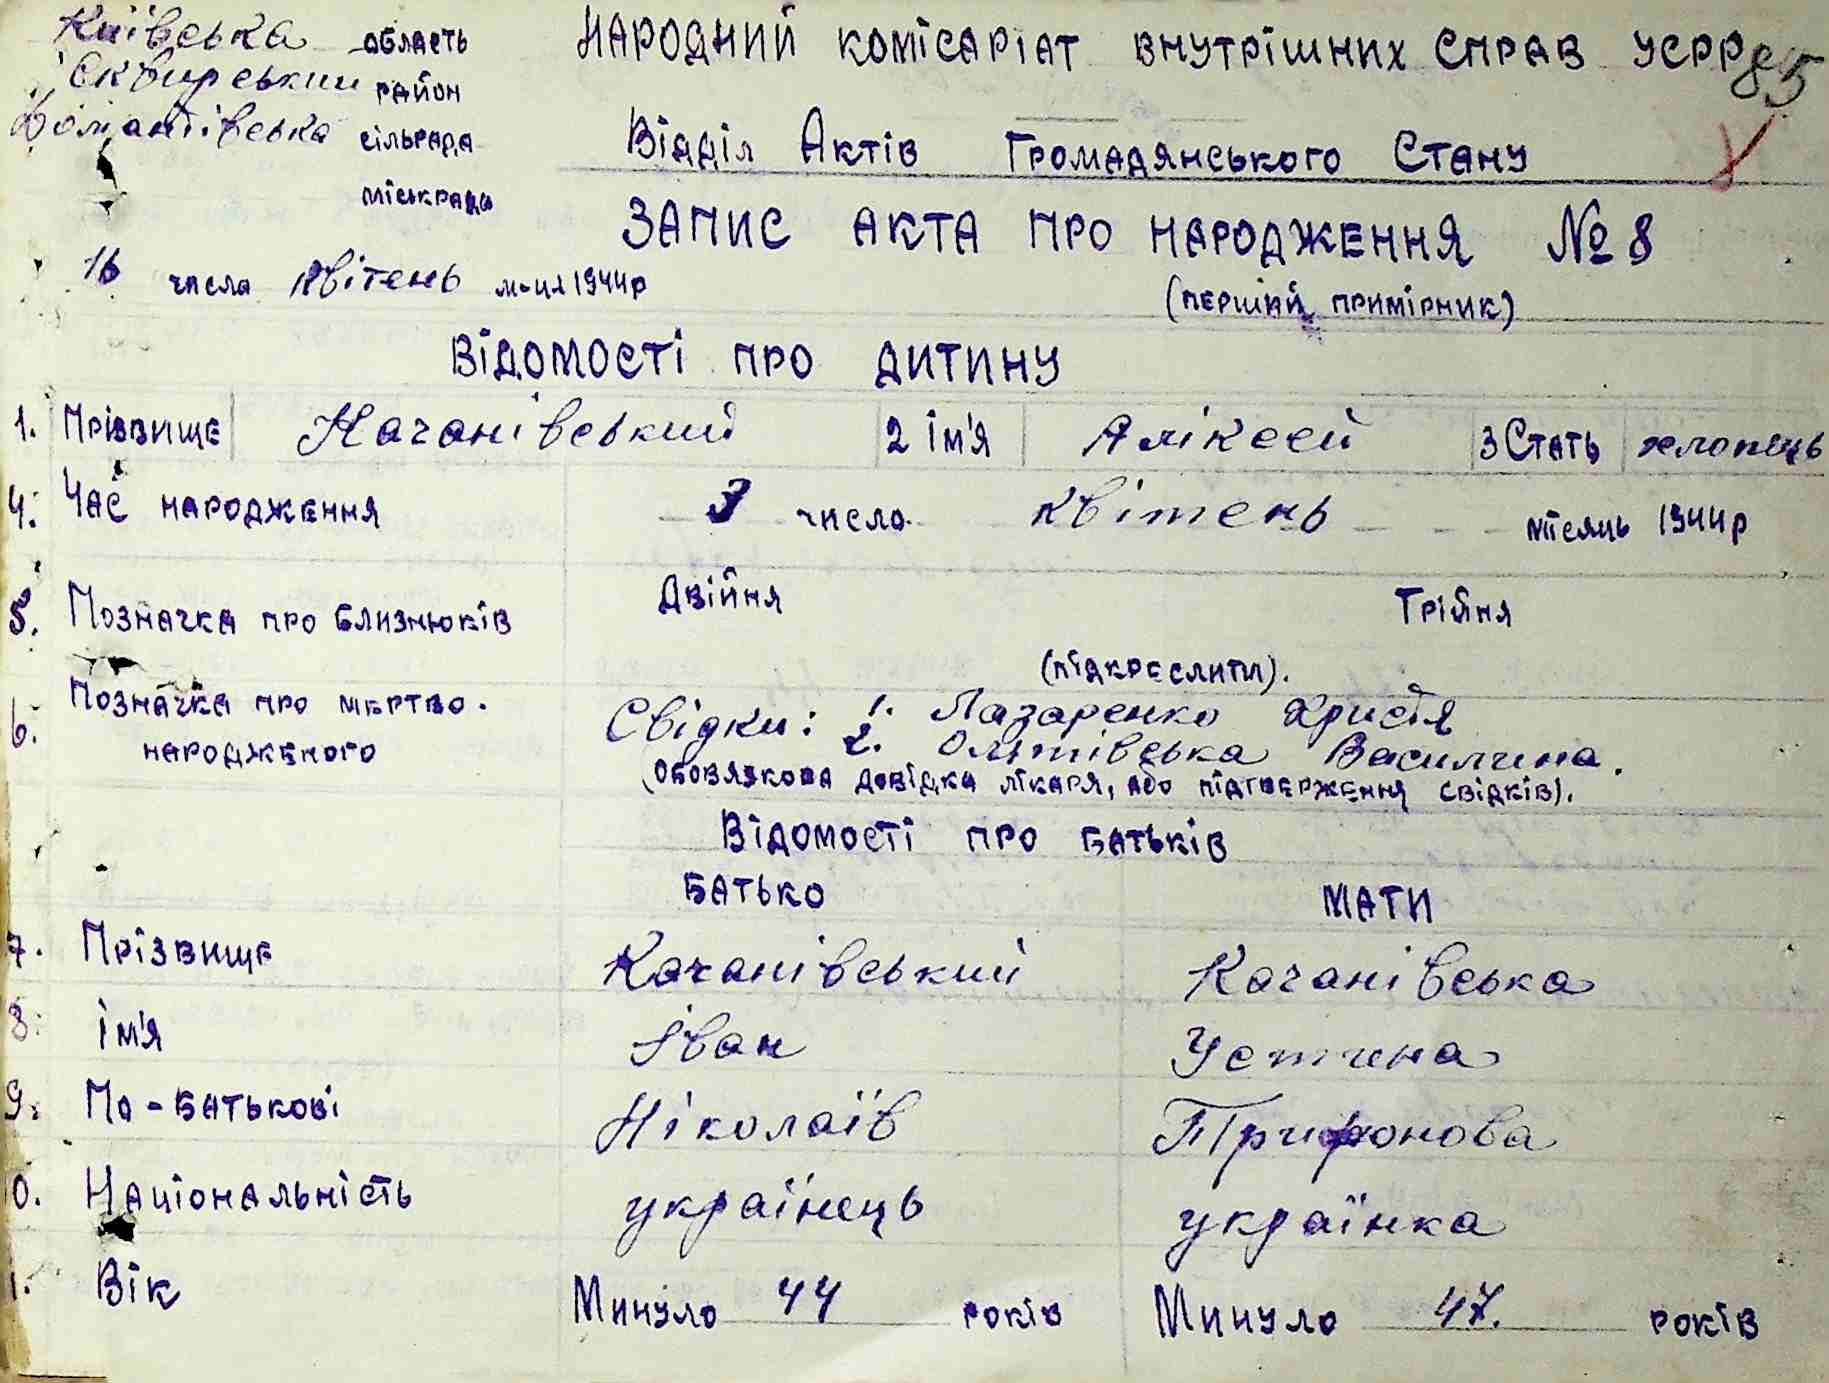 Київська область
Сквирський район
сільрада
міськрада
НАРОДНИЙ КОМІСАРІАТ ВНУТРІШНИХ СПРАВ УСРР
85
Відділ Актів Громадянського Стану
ЗАПИС АКТА ПРО НАРОДЖЕННЯ № 8
16 числа квітень м-ця 1944р
(перший примірник)
ВІДОМОСТІ ПРО ДИТИНУ
1. Прізвище Качанівський 2 Ім'я Аліксей 3 Стать хлопець
4. Час народження 3 числа квітень місяць 1944р
5. Позначка про близнюків Двійня Трійня
(підкреслити).
6. Позначка про мертво-народженого
Свідки: 1. Лазаренко Христя
2. Василина.
(обовязкова довідка лікаря, або підтверження свідків).
Відомості про батьків
БАТЬКО МАТИ
7. Прізвище Качанівський Качанівська
8. Ім'я Іван Устина
9. По-батькові Ніколаїв Трифонова
0. Національність українець українка
1. Вік Минуло 44 років Минуло 47. років